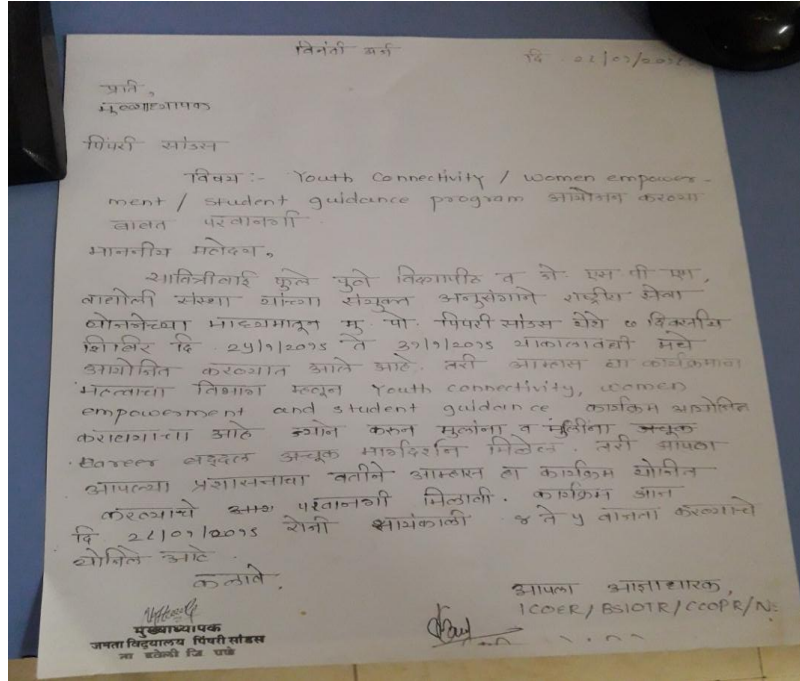 विनंती अर्ज
दि
प्रति,
मुख्याध्यापक
पिंपरी सांडस
विषय :- Youth Connectivity / women empower-
ment / student guidance program आयोजन करण्या
बाबत परवानगी
माननीय महोदय,
सावित्रीबाई फुले पुणे विद्यापीठ व जे. एस पी एम,
वाघोली संस्था यांच्या संयुक्त अनुसंगाने राष्ट्रीय सेवा
योजनेच्या माध्यमातून मु. पो. पिंपरी सांडस येथे ७ दिवसीय
शिबिर दि. ते मध्ये
आयोजित करण्यात आले आहे. तरी आम्हास ह्या कार्यक्रमाचा
महत्वाचा विभाग म्हणून Youth connectivity, women
empowerment and student guidance कार्यक्रम आयोजित
करावयाचा आहे करुन मुलांना व मुलींना
Career बद्दल अचूक मार्गदर्शन मिळेल. तरी आपला
आपल्या प्रशासनाचा वतीने आम्हास हा कार्यक्रम योजीत
करण्याचे परवानगी मिळावी. कार्यक्रम आज
दि. रोजी सायंकाळी ४ ते ५ वाजता करण्याचे
योजिले आहे.
कळावे.
आपला आज्ञाधारक,
ICOER / BSIOTR / CCOPR /
मुख्याध्यापक
जनता विद्यालय पिंपरी सांडस
ता हवेली जि पुणे